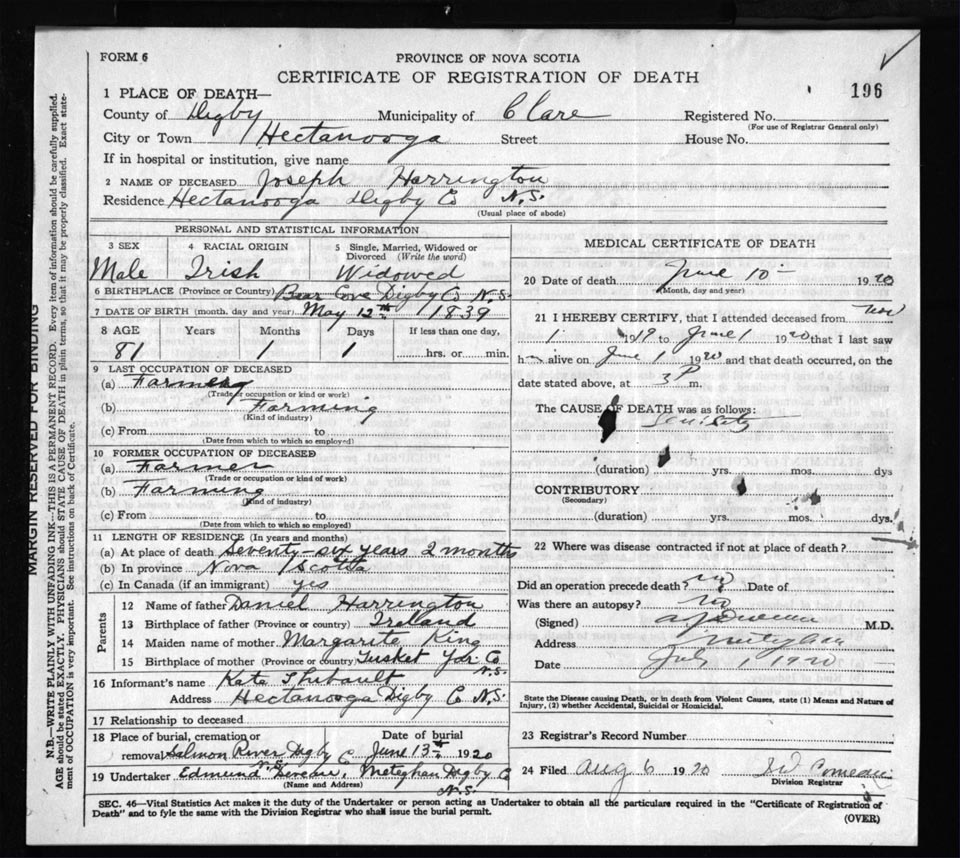 FORM 6
PROVINCE OF NOVA SCOTIA
CERTIFICATE OF REGISTRATION OF DEATH
196
1 PLACE OF DEATH—
County of Digby Municipality of Clare Registered No.
(For use of Registrar General only)
City or Town Hectanooga Street House No.
If in hospital or institution, give name
2 NAME OF DECEASED Joseph Harrington
Residence Hectanooga Digby Co N.S.
(Usual place of abode)
PERSONAL AND STATISTICAL INFORMATION
3 SEX 4 RACIAL ORIGIN 5 Single, Married, Widowed or Divorced (Write the word)
Male Irish Widowed
6 BIRTHPLACE (Province or Country) Bear Cove Digby Co N.S.
7 DATE OF BIRTH (month, day and year) May 12th 1839
8 AGE Years Months Days If less than one day,
81 1 1 hrs. or min.
9 LAST OCCUPATION OF DECEASED
(a) Farming
(Trade or occupation or kind of work)
(b) Farming
(Kind of industry)
(c) From to
(Date from which to which so employed)
10 FORMER OCCUPATION OF DECEASED
(a) Farmer
(Trade or occupation or kind of work)
(b) Farming
(Kind of industry)
(c) From to
(Date from which to which so employed)
11 LENGTH OF RESIDENCE (In years and months)
(a) At place of death Seventy-six years 2 months
(b) In province Nova Scotia
(c) In Canada (if an immigrant) yes
Parents
12 Name of father Daniel Harrington
13 Birthplace of father (Province or country) Ireland
14 Maiden name of mother Margarite King
15 Birthplace of mother (Province or country) Tusket Yar Co N.S.
16 Informant's name Kate Thibault
Address Hectanooga Digby Co N.S.
17 Relationship to deceased
18 Place of burial, cremation or removal Date of burial
Salmon River Digby Co N.S. June 13th 1920
19 Undertaker Edmund Deveau, Meteghan Digby Co N.S.
(Name and Address)
MEDICAL CERTIFICATE OF DEATH
20 Date of death June 10 1920
(Month, day and year)
21 I HEREBY CERTIFY, that I attended deceased from Nov
1 1919 to June 1 1920 that I last saw
h alive on June 1 1920 and that death occurred, on the
date stated above, at 3 P m.
The CAUSE OF DEATH was as follows:
Senility
(duration) yrs. mos. dys
CONTRIBUTORY
(Secondary)
(duration) yrs. mos. dys.
22 Where was disease contracted if not at place of death?
Did an operation precede death? no Date of
Was there an autopsy? no
(Signed) M.D.
Address Meteghan
Date July 1, 1920
State the Disease causing Death, or in death from Violent Causes, state (1) Means and Nature of Injury, (2) whether Accidental, Suicidal or Homicidal.
23 Registrar's Record Number
24 Filed Aug 6 1920 Comeau
Division Registrar
SEC. 46—Vital Statistics Act makes it the duty of the Undertaker or person acting as Undertaker to obtain all the particulars required in the "Certificate of Registration of
Death" and to fyle the same with the Division Registrar who shall issue the burial permit.
(OVER)
MARGIN RESERVED FOR BINDING
N.B.—WRITE PLAINLY WITH UNFADING INK—THIS IS A PERMANENT RECORD. Every item of information should be carefully supplied.
AGE should be stated EXACTLY. PHYSICIANS should STATE CAUSE OF DEATH in plain terms, so that it may be properly classified. Exact state-
ment of OCCUPATION is very important. See instructions on back of Certificate.